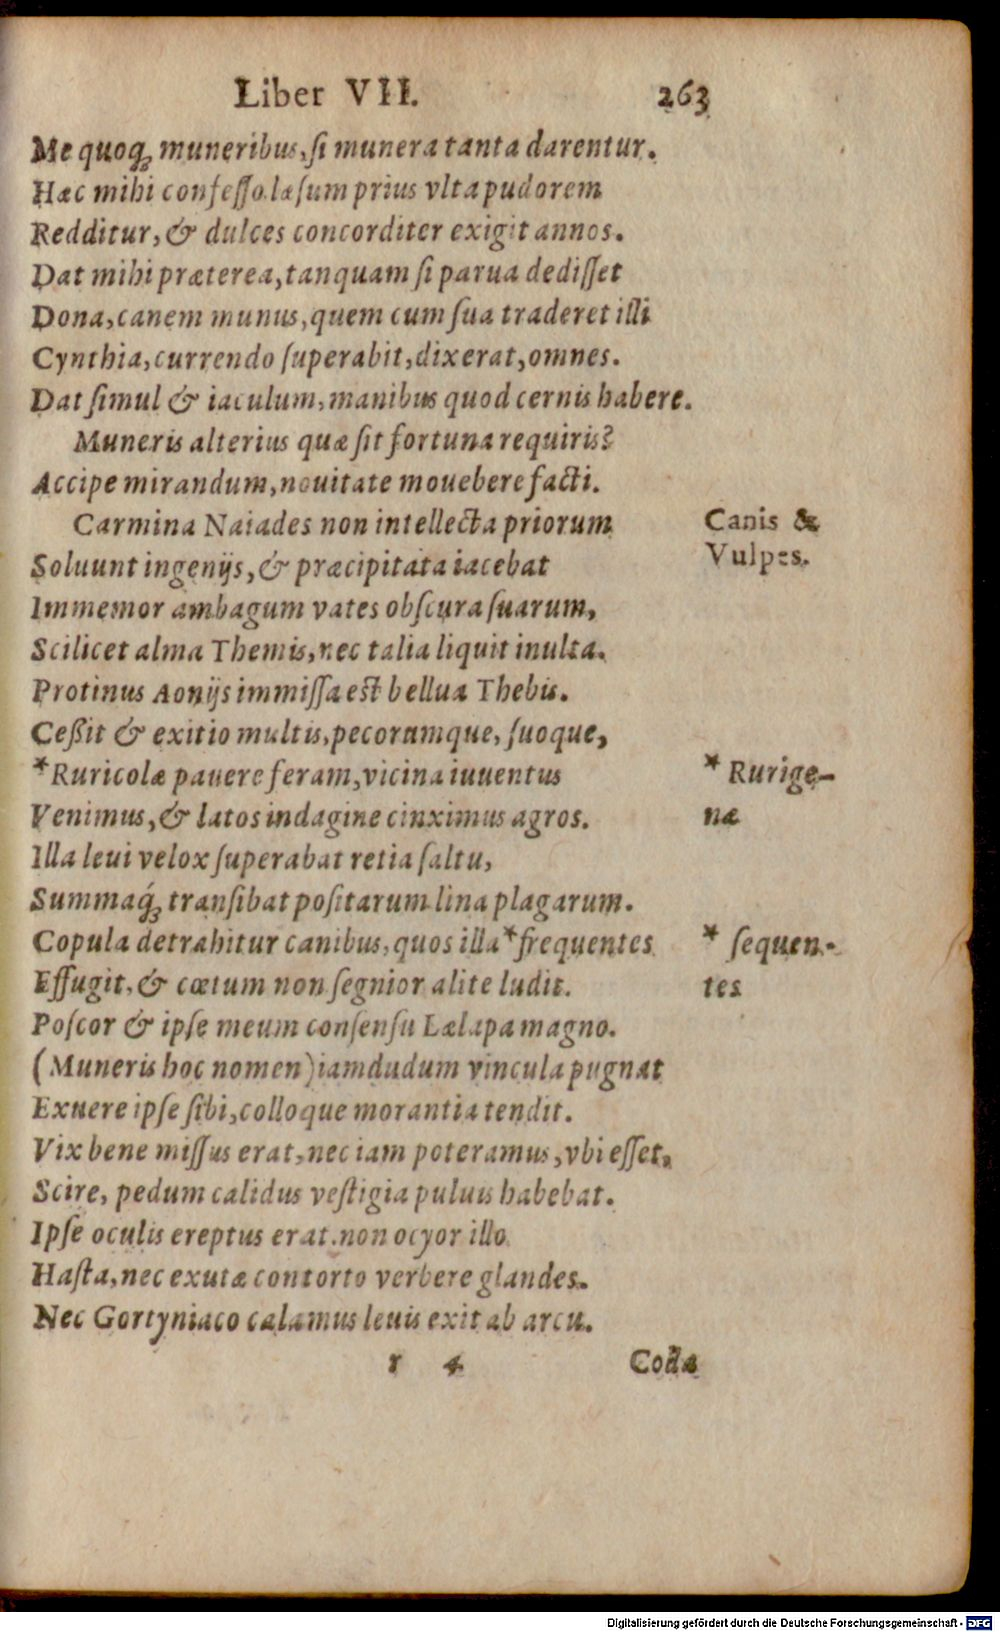 Liber VII. 263
Me quoq; muneribus, ſi munera tanta darentur.
Hæc mihi confeſſo læſum prius vlta pudorem
Redditur, & dulces concorditer exigit annos.
Dat mihi præterea, tanquam ſi parua dediſſet
Dona, canem munus, quem cum ſua traderet illi
Cynthia, currendo ſuperabit, dixerat, omnes.
Dat ſimul & iaculum, manibus quod cernis habere.
Muneris alterius quæ ſit fortuna requiris?
Accipe mirandum, nouitate mouebere facti.
Carmina Naiades non intellecta priorum
Canis &
Vulpes.
Soluunt ingenijs, & præcipitata iacebat
Immemor ambagum vates obſcura ſuarum,
Scilicet alma Themis, nec talia liquit inulta.
Protinus Aonijs immiſſa eſt bellua Thebis.
Ceßit & exitio multis, pecorumque, ſuoque,
*Ruricolæ pauere feram, vicina iuuentus
* Rurige-
næ
Venimus, & latos indagine cinximus agros.
Illa leui velox ſuperabat retia ſaltu,
Summaq́; tranſibat poſitarum lina plagarum.
Copula detrahitur canibus, quos illa *frequentes
* ſequen-
tes
Effugit, & cœtum non ſegnior alite ludit.
Poſcor & ipſe meum conſenſu Lælapa magno.
(Muneris hoc nomen) iamdudum vincula pugnat
Exuere ipſe ſibi, colloque morantia tendit.
Vix bene miſſus erat, nec iam poteramus, vbi eſſet,
Scire, pedum calidus veſtigia puluis habebat.
Ipſe oculis ereptus erat. non ocyor illo
Haſta, nec exutæ contorto verbere glandes.
Nec Gortyniaco calamus leuis exit ab arcu.
r 4 Colla
Digitalisierung gefördert durch die Deutsche Forschungsgemeinschaft - DFG